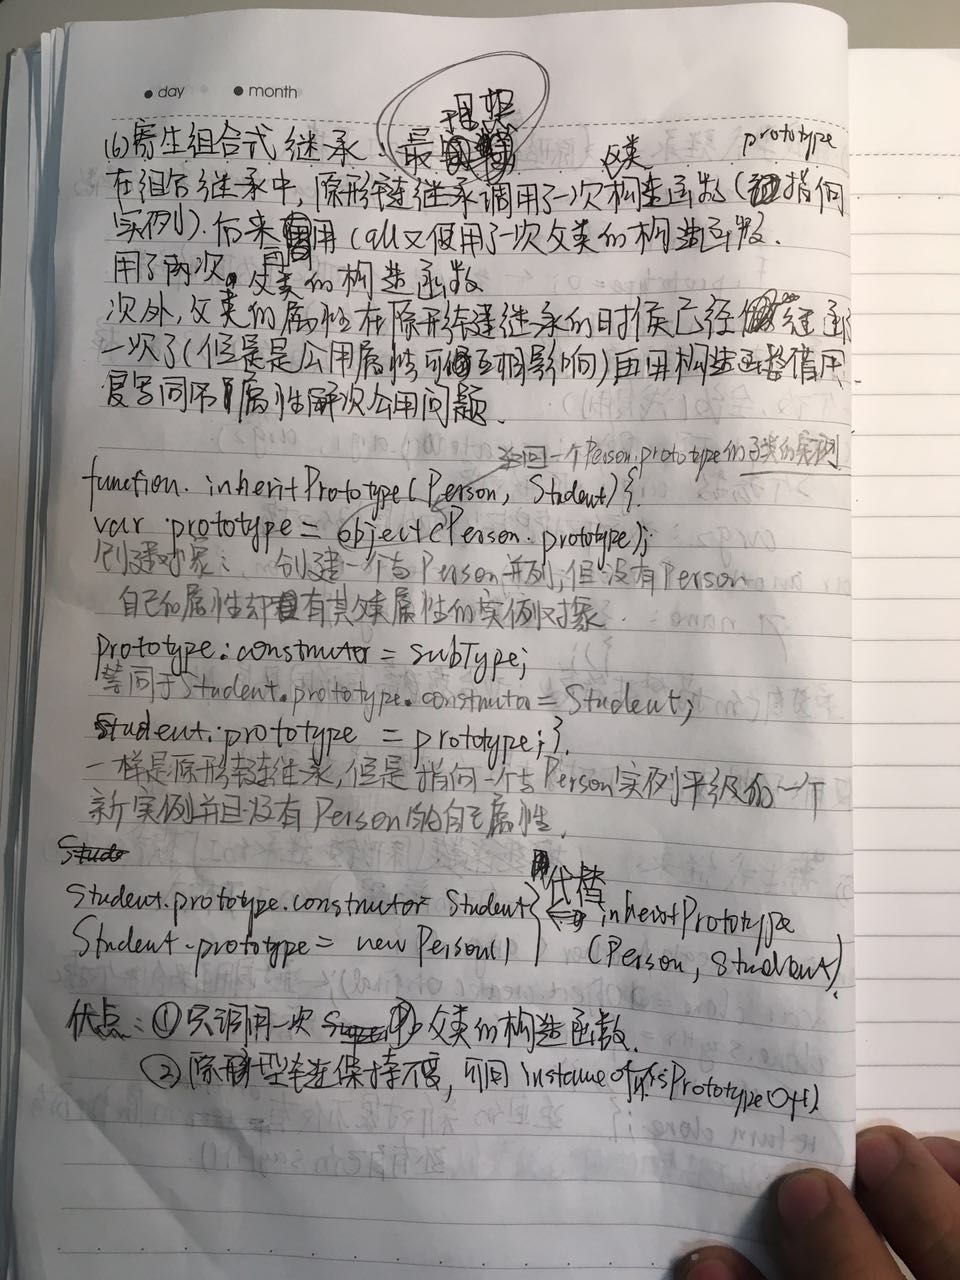 day month
(6)寄生组合式继承. 最理想
父类 prototype
在组合继承中,原形链继承调用了一次构造函数(指向
实例).后来再用call又使用了一次父类的构造函数.
用了两次。父类的构造函数
次外,父类的属性在原形链继承的时候已经继承
一次了(但是是公用属性可互相影响)再用构造函数借用
复写同名属性解决公用问题.
返回一个Person.prototype的子类的实例
function. inheritPrototype(Person, Student){
var prototype = object(Person.prototype);
创建对象: 创建一个与Person并列,但没有Person
自己的属性却有其父类属性的实例对象.
prototype.constructor = subType;
等同于Student.prototype.constructor = Student;
Student.prototype = prototype;}.
一样是原形链继承,但是指向一个与Person实例平级的一个
新实例并且没有Person的自己属性.
Stude
代替
Student.prototype.constructor Student } inheritPrototype
Student.prototype = new Person() (Person, Student)
优点: ①只调用一次 父类的构造函数.
②原型链保持不变,可用 instanceof和isPrototypeOf()